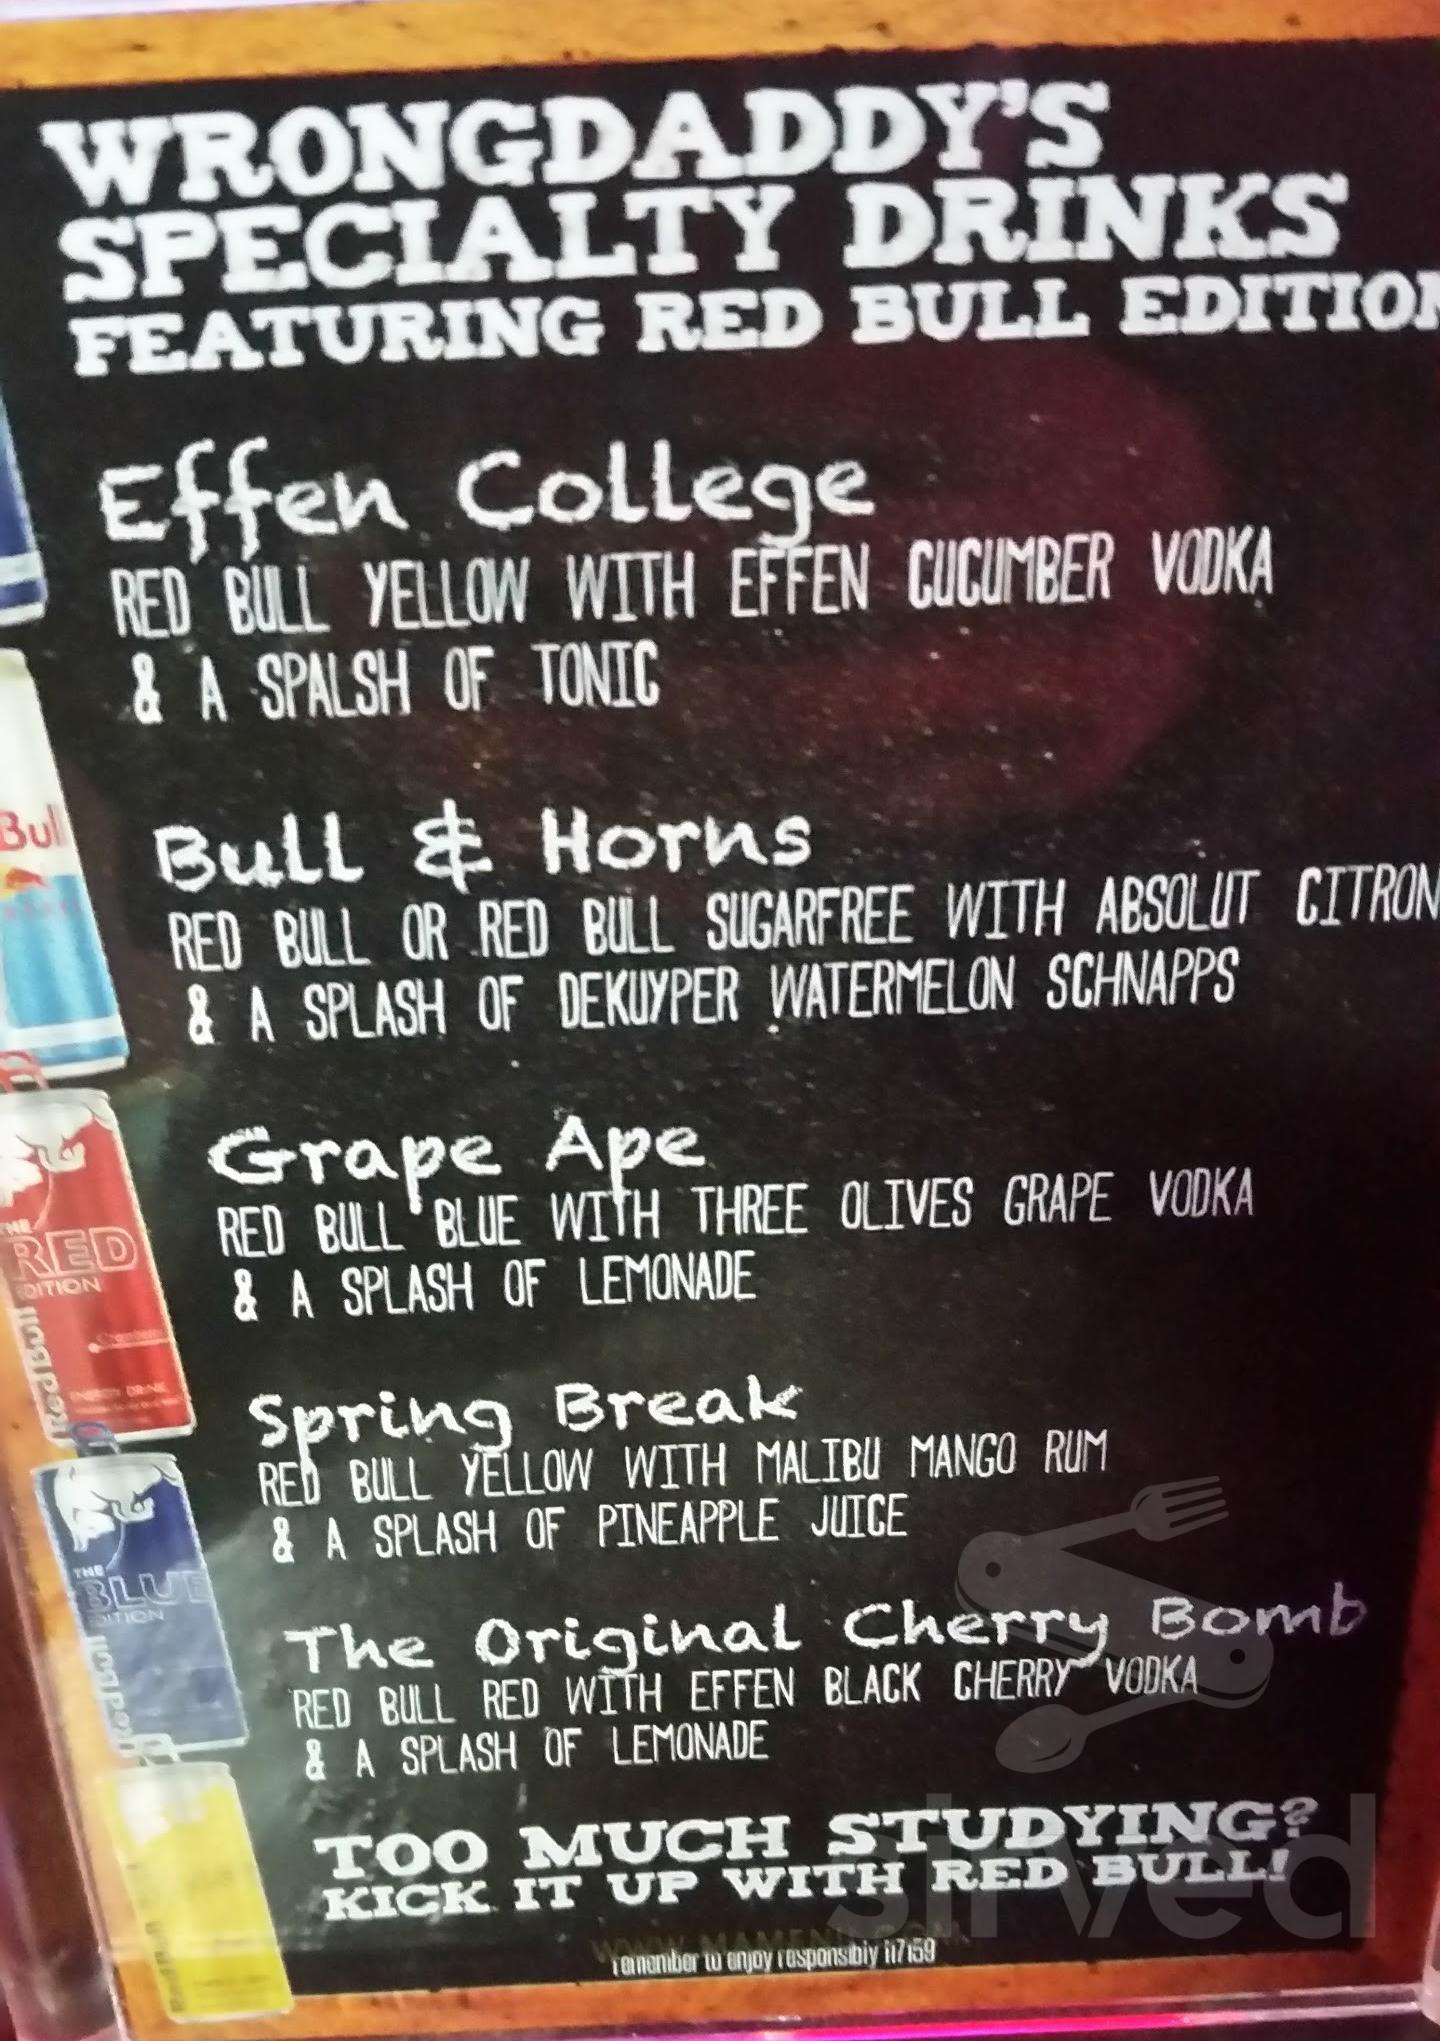 WRONGDADDY'S
SPECIALTY DRINKS
FEATURING RED BULL EDITION
Effen College
RED BULL YELLOW WITH EFFEN CUCUMBER VODKA
& A SPALSH OF TONIC
Bull & Horns
RED BULL OR RED BULL SUGARFREE WITH ABSOLUT CITRON
& A SPLASH OF DEKUYPER WATERMELON SCHNAPPS
Grape Ape
RED BULL BLUE WITH THREE OLIVES GRAPE VODKA
& A SPLASH OF LEMONADE
Spring Break
RED BULL YELLOW WITH MALIBU MANGO RUM
& A SPLASH OF PINEAPPLE JUICE
The Original Cherry Bomb
RED BULL RED WITH EFFEN BLACK CHERRY VODKA
& A SPLASH OF LEMONADE
TOO MUCH STUDYING?
KICK IT UP WITH RED BULL!
remember to enjoy responsibly 117159
Bull
THE
RED
EDITION
Red Bull
THE
BLUE
EDITION
Red Bull
sirved